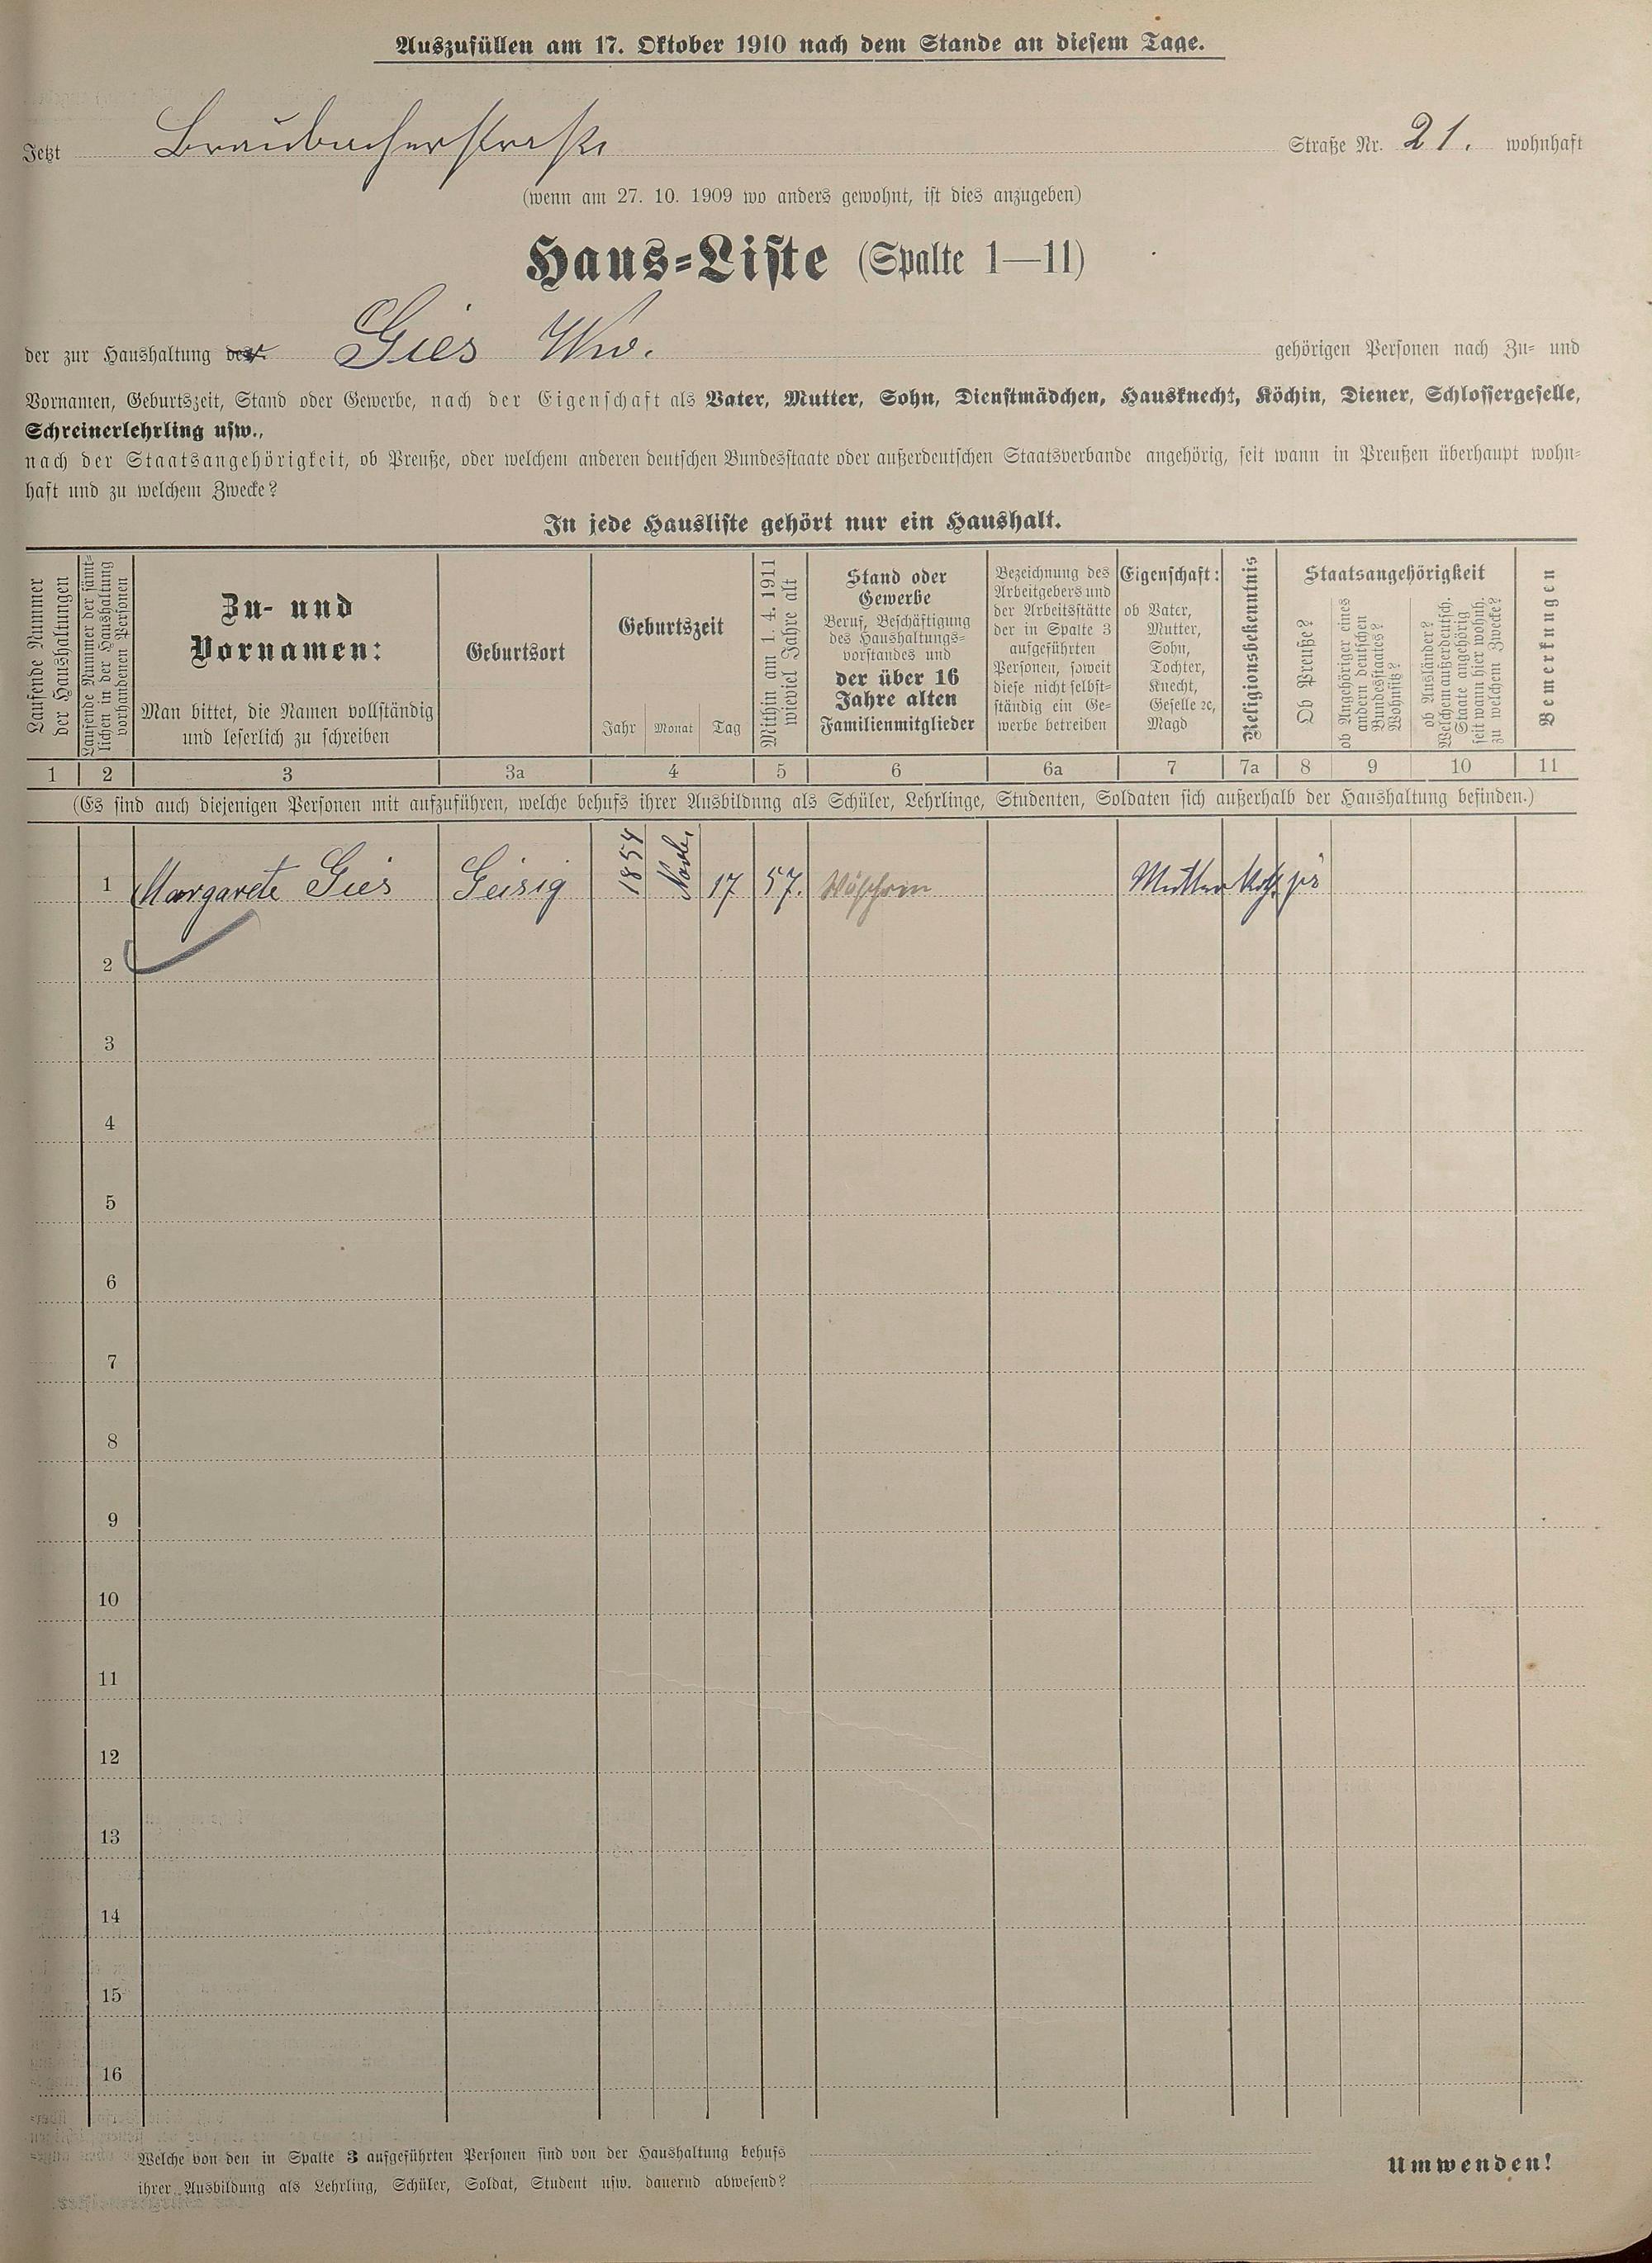 Auszufüllen am 17. Oktober 1910 nach dem Stande an diesem Tage.
Jetzt Braubacherstraße Straße Nr. 21. wohnhaft
(wenn am 27. 10. 1909 wo anders gewohnt, ist dies anzugeben)
Haus-Liste (Spalte 1—11)
der zur Haushaltung der Gies Ww. gehörigen Personen nach Zu- und
Vornamen, Geburtszeit, Stand oder Gewerbe, nach der Eigenschaft als Vater, Mutter, Sohn, Dienstmädchen, Hausknecht, Köchin, Diener, Schlossergeselle,
Schreinerlehrling usw.,
nach der Staatsangehörigkeit, ob Preuße, oder welchem anderen deutschen Bundesstaate oder außerdeutschen Staatsverbande angehörig, seit wann in Preußen überhaupt wohn-
haft und zu welchem Zwecke?
In jede Hausliste gehört nur ein Haushalt.
Laufende Nummer
der Haushaltungen
Laufende Nummer der sämt-
lichen in der Haushaltung
vorhandenen Personen
Zu- und
Vornamen:
Man bittet, die Namen vollständig
und leserlich zu schreiben
Geburtsort
Geburtszeit
Jahr Monat Tag
Mithin am 1. 4. 1911
wieviel Jahre alt
Stand oder
Gewerbe
Beruf, Beschäftigung
des Haushaltungs-
vorstandes und
der über 16
Jahre alten
Familienmitglieder
Bezeichnung des
Arbeitgebers und
der Arbeitsstätte
der in Spalte 3
aufgeführten
Personen, soweit
diese nicht selbst-
ständig ein Ge-
werbe betreiben
Eigenschaft:
ob Vater,
Mutter,
Sohn,
Tochter,
Knecht,
Geselle ꝛc,
Magd
Religionsbekenntnis
Staatsangehörigkeit
Ob Preuße?
ob Angehöriger eines
andern deutschen
Bundesstaates?
Wohnsitz?
ob Ausländer?
Welchem außerdeutsch.
Staate angehörig
seit wann hier wohnh.
zu welchem Zwecke?
Bemerkungen
1 2 3 3a 4 5 6 6a 7 7a 8 9 10 11
(Es sind auch diejenigen Personen mit aufzuführen, welche behufs ihrer Ausbildung als Schüler, Lehrlinge, Studenten, Soldaten sich außerhalb der Haushaltung befinden.)
1 Margarete Gies Geisig 1854 Novbr. 17 57. Wäscherin Mutter Kath.
2
3
4
5
6
7
8
9
10
11
12
13
14
15
16
Welche von den in Spalte 3 aufgeführten Personen sind von der Haushaltung behufs
ihrer Ausbildung als Lehrling, Schüler, Soldat, Student usw. dauernd abwesend?
Umwenden!